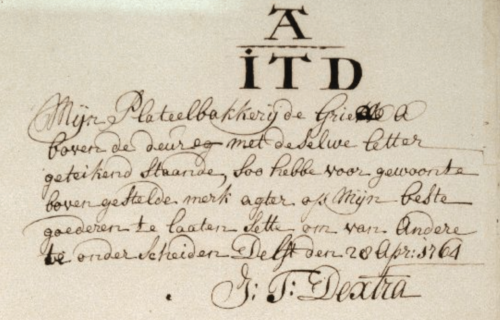 A
ITD
Mijn Plateelbakkerij de Grie A
boven de deur en met deselve letter
geteikend staande, soo hebbe voor gewoonte
boven gestelde merk agter op Mijn beste
goederen te laaten sette om van Andere
te onder scheiden Delft den 28 Apr: 1764
J: T: Dextra